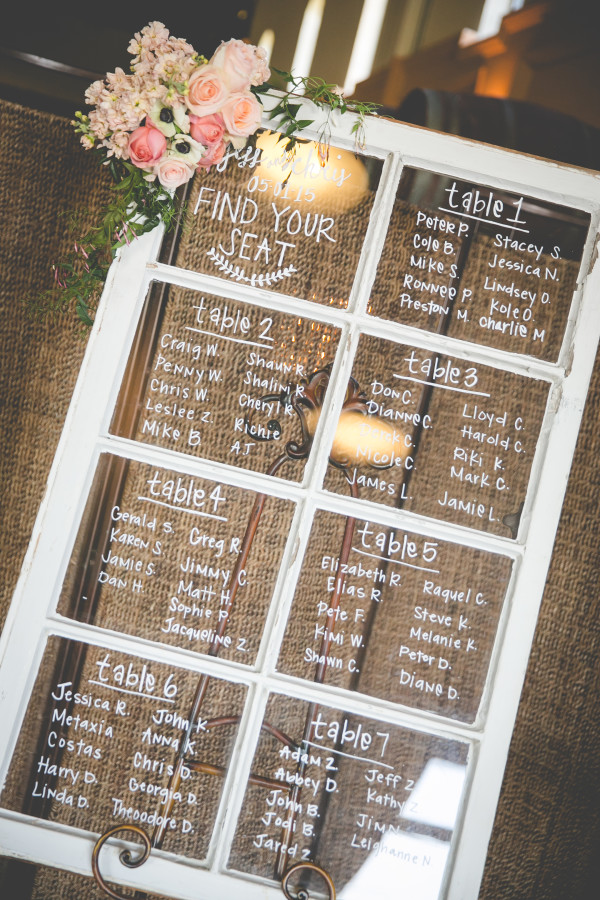 Jess & Chris
05.01.15
FIND YOUR
SEAT
table 1
Peter P.
Cole B.
Mike S.
Ronnee P.
Preston M.
Stacey S.
Jessica N.
Lindsey O.
Kole O.
Charlie M
table 2
Craig W.
Penny W.
Chris W.
Leslee Z.
Mike B.
Shaun R.
Shalini R.
Cheryl R.
Richie
AJ
table 3
Don C.
Dianne C.
Derek C.
Nicole C.
James L.
Lloyd C.
Harold C.
Riki K.
Mark C.
Jamie L.
table 4
Gerald S.
Karen S.
Jamie S.
Dan H.
Greg R.
Jimmy C.
Matt H.
Sophie P.
Jacqueline Z.
table 5
Elizabeth R.
Elias R.
Pete F.
Kimi W.
Shawn C.
Raquel C.
Steve K.
Melanie K.
Peter D.
Diane D.
table 6
Jessica R.
Metaxia
Costas
Harry D.
Linda D.
John K.
Anna K.
Chris D.
Georgia D.
Theodore D.
table 7
Adam Z
Abbey D.
John B.
Jodi B.
Jared Z
Jeff Z
Kathy Z
Jim N
Leighanne N